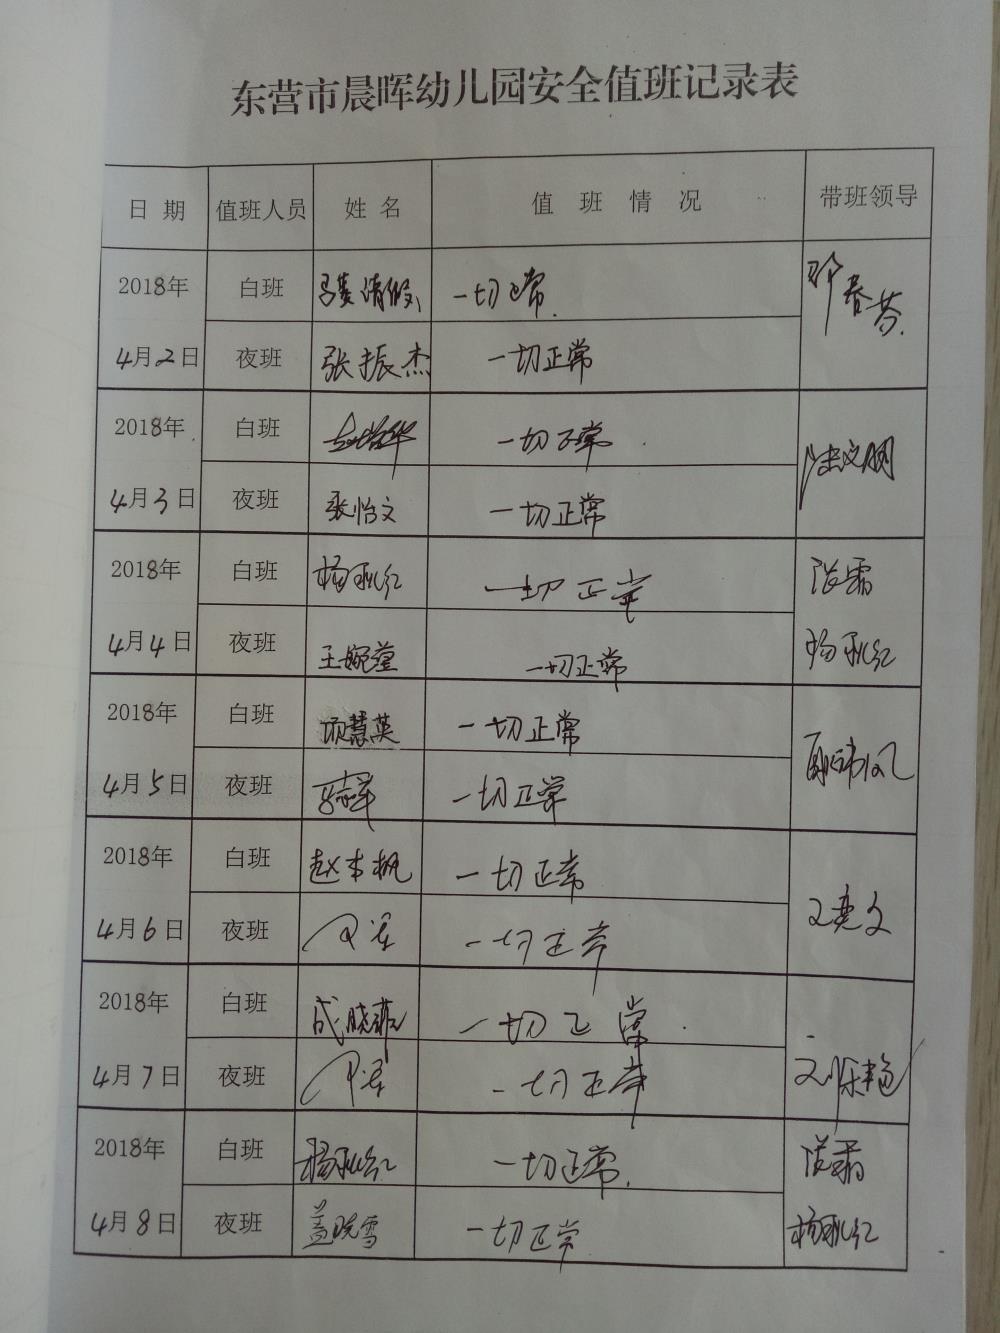 东营市晨晖幼儿园安全值班记录表
日 期 值班人员 姓 名 值 班 情 况 带班领导
2018年 白班 一切正常.
4月2日 夜班 张振杰 一切正常
2018年 白班 一切正常
4月3日 夜班 张怡文 一切正常
2018年 白班 杨秋红 一切正常
4月4日 夜班 王婉莹 一切正常 杨秋红
2018年 白班 项慧英 一切正常
4月5日 夜班 一切正常
2018年 白班 赵本帆 一切正常
4月6日 夜班 一切正常
2018年 白班 成晓菲 一切正常
4月7日 夜班 一切正常
2018年 白班 杨秋红 一切正常.
4月8日 夜班 盖晓雪 一切正常 杨秋红